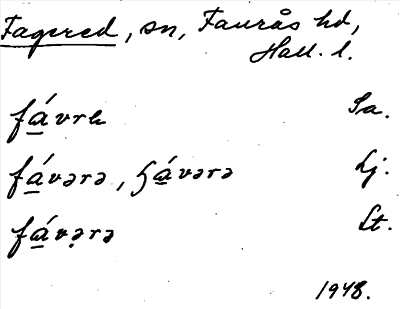 Fagered, sn, Faurås hd,
Hall. l.
fá̲vrɛ Sa.
fá̲vərə, ɧá̲vərə Lj.
fá̲və̣rə St.
1948.